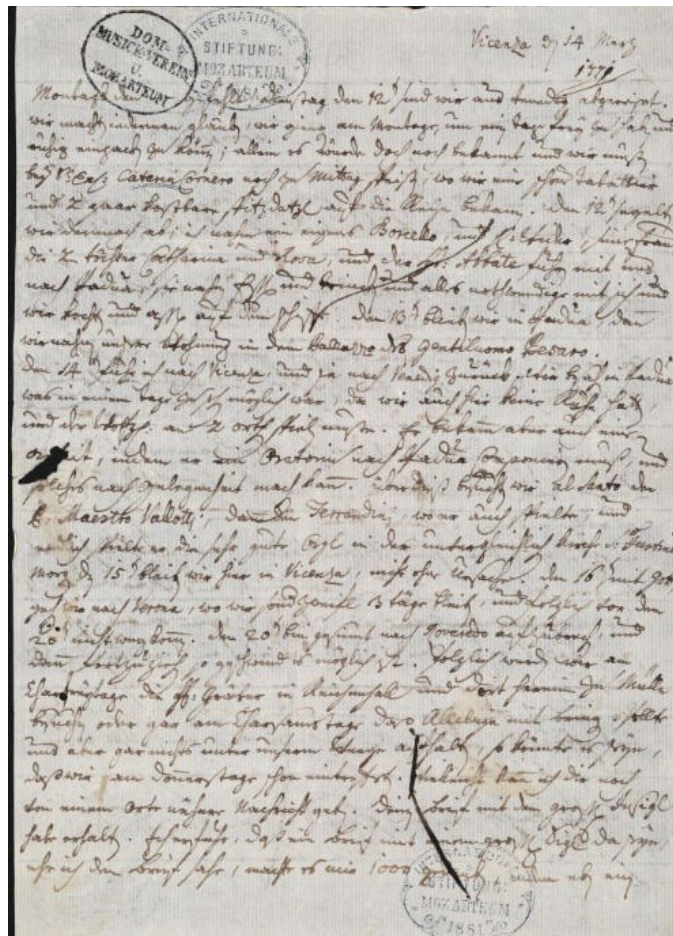 DOM-MUSICK-VEREIN U. MOZARTEUM
INTERNATIONALE STIFTUNG: MOZARTEUM 1881
Vicenza den 14 Merz
1771
Montags den gefehlt dienstag den 12t sind wir aus venedig abgereiset.
wir machten iederman glauben, wir giengen am Montage, um ein tag frey zu haben und
ruhig einpacken zu können; allein es wurde doch noch bekannt und wir musten
bey Catarina Cornero noch zu Mittag speisen, wo wir eine schöne tabattier
und 2 paar kostbare spitzdatzl auf die Reise bekamen. den 12t segelten
wir demnach ab; ich nahm ein eigenes Borcello, und seine Frau
die 2 töchter Catharina und Rosa, und der Hr: Abbate fuhr mit uns
nach Padua, sie nahmen Essen und trinken und alles nothwendige mit sich und
wir kochten und assen auf dem schiffe. den 13t blieben wir in Padua, dan
wir nahmen unsere Wohnung in dem Pallazzo des Gentiluomo Pesaro.
den 14t fuhr ich nach Vicenza, und sie nach Venedig zurück. wir in Padua
was in einem tage zu sehen möglich war, da wir auch hier keine Ruhe hatten,
und der Wolfg: an 2 orthen spielen muste. Er bekam aber auch eine
Arbeit, indem er ein Oratorium nach Padua componieren muß, und
solches nach gelegenheit machen kann. besuchten wir al Santo den
P. Maestro Vallotti, dan den Ferrandini, wo er auch spielte, und
endlich spielte er die sehr gute Orgl in der unvergleichlich kirche S: Justina
morgen den 15t bleiben wir hier in Vicenza, nicht ohne Ursache. den 16t mit gott
gehen wir nach Verona, wo wir 3 täge bleiben, und folglich vor dem
20t nicht wegkommen. den 20t bin gesinnt nach Roveredo aufzubrechen, und
dann fortzugehen so geschwind es möglich ist. folglich werden wir am
Charfreytage die in Reichenhall und dort herum
besuchen oder gar am Charsamstage das Alleluja mit bringen. sollte
uns aber gar nichts unter unserem Wege aufhalten, so könnte es seyn,
daß wir am Donnerstage schon eintreffen. Vielleicht kan ich dir noch
von einem Orte nähere Nachricht geben. deinen brief mit dem grossen Insigl
habe erhalten. daß ein brief mit einem grossen Sigl da seye,
ehe ich den brief sahe, machte es mir 1000
INTERNATIONALE STIFTUNG: MOZARTEUM 1881